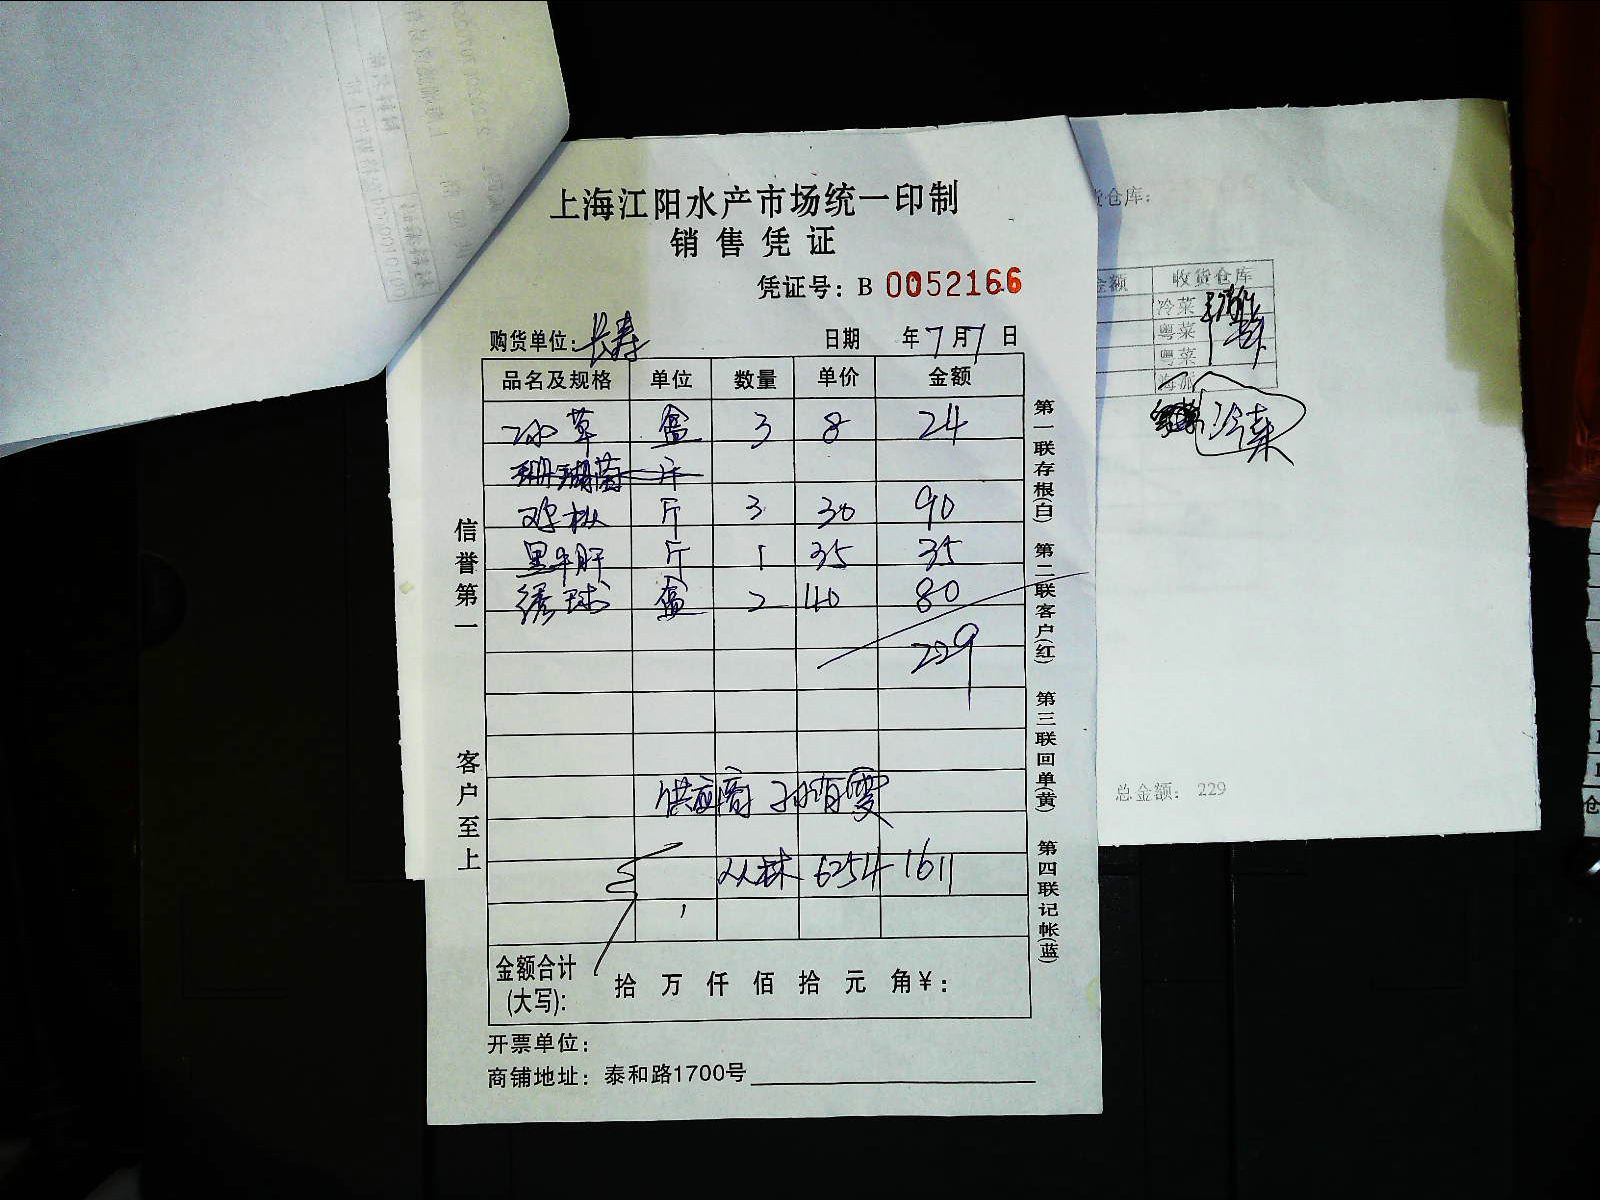 上海江阳水产市场统一印制
销售凭证
凭证号：B 0052166
购货单位：长寿 日期 年7月7日
品名及规格 单位 数量 单价 金额
冰草 盒 3 8 24
珊瑚菌 斤
鸡枞 斤 3 30 90
黑牛肝 斤 1 35 35
绣球 盒 2 40 80
229
供应商 孙有雯
从林 6254 1611
金额合计
(大写)：
拾 万 仟 佰 拾 元 角¥：
开票单位：
商铺地址：泰和路1700号
信誉第一
客户至上
第一联存根(白) 第二联客户(红) 第三联回单(黄) 第四联记帐(蓝)
货仓库：
金额 收货仓库
冷菜
粤菜
粤菜
海派
冷菜
总金额：229